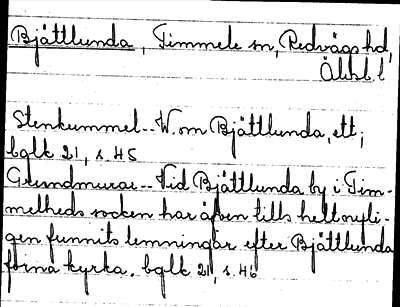 Bjättlunda, Timmele sn, Redvägs hd,
Älvsb. l
Stenkummel--W. om Bjättlunda, ett;
bglk 21, s. 45
Grundmurar--Vid Bjättlunda by i Tim-
melheds socken har äfven tills helt nyli-
gen funnits lemningar efter Bjättlunda
forna kyrka. bglk 21, s. 46